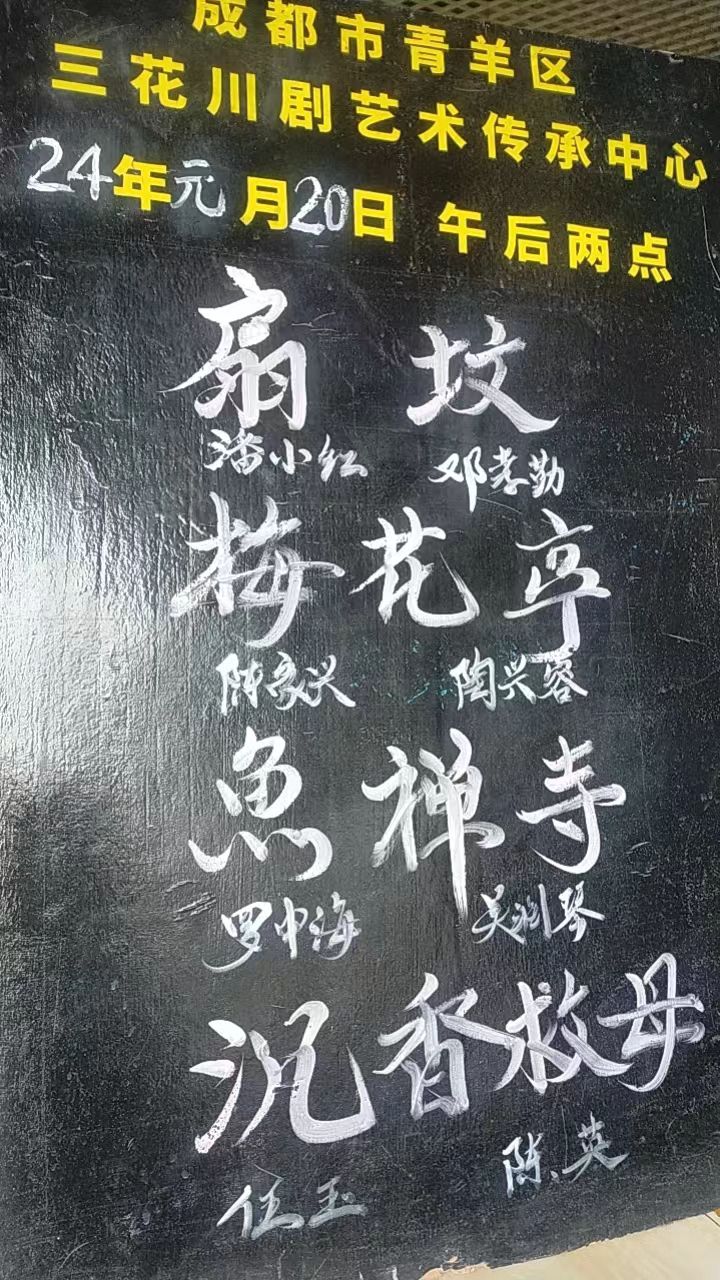 成都市青羊区
三花川剧艺术传承中心
24年元月20日 午后两点
扇 坟
潘小红 邓孝勤
梅花亭
陈家兴 陶兴容
鱼禅寺
罗中海 吴琴
沉香救母
伍玉 陈英